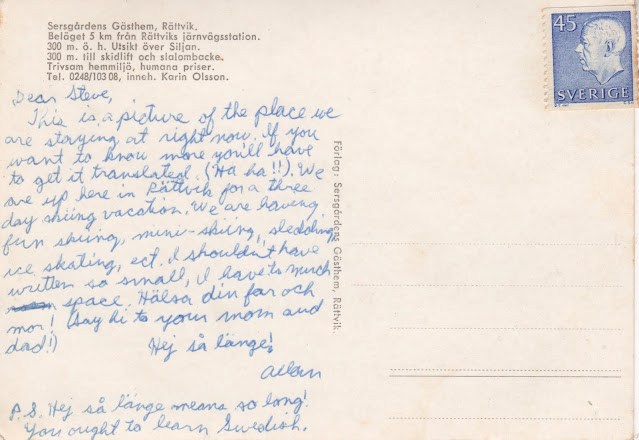 Sersgårdens Gästhem, Rättvik.
Beläget 5 km från Rättviks järnvägsstation.
300 m. ö. h. Utsikt över Siljan.
300 m. till skidlift och slalombacke.
Trivsam hemmiljö, humana priser.
Tel. 0248/103 08, inneh. Karin Olsson.
Dear Steve,
This is a picture of the place we
are staying at right now. If you
want to know more you'll have
to get it translated. (Ha ha!!). We
are up here in Rättvik for a three
day skiing vacation. We are having
fun skiing, mini-skiing, sledding,
ice skating, ect. I shouldn't have
written so small, I have to much
space. Hälsa din far och
mor! (say hi to your mom and
dad!) Hej så länge!
Allan
P.S. Hej så länge means so long!
You ought to learn Swedish.
Förlag: Sersgårdens Gästhem, Rättvik.
45
SVERIGE